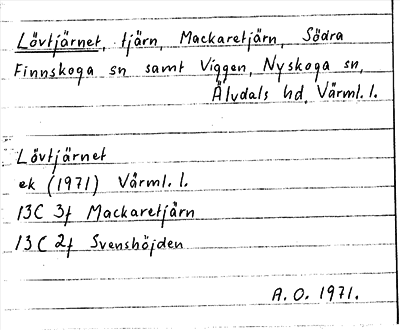 Lövtjärnet, tjärn, Mackaretjärn, Södra
Finnskoga sn samt Viggen, Nyskoga sn,
Älvdals hd, Värml. l.
Lövtjärnet
ek (1971) Värml. l.
13C 3f Mackaretjärn
13C 2f Svenshöjden
A.O. 1971.